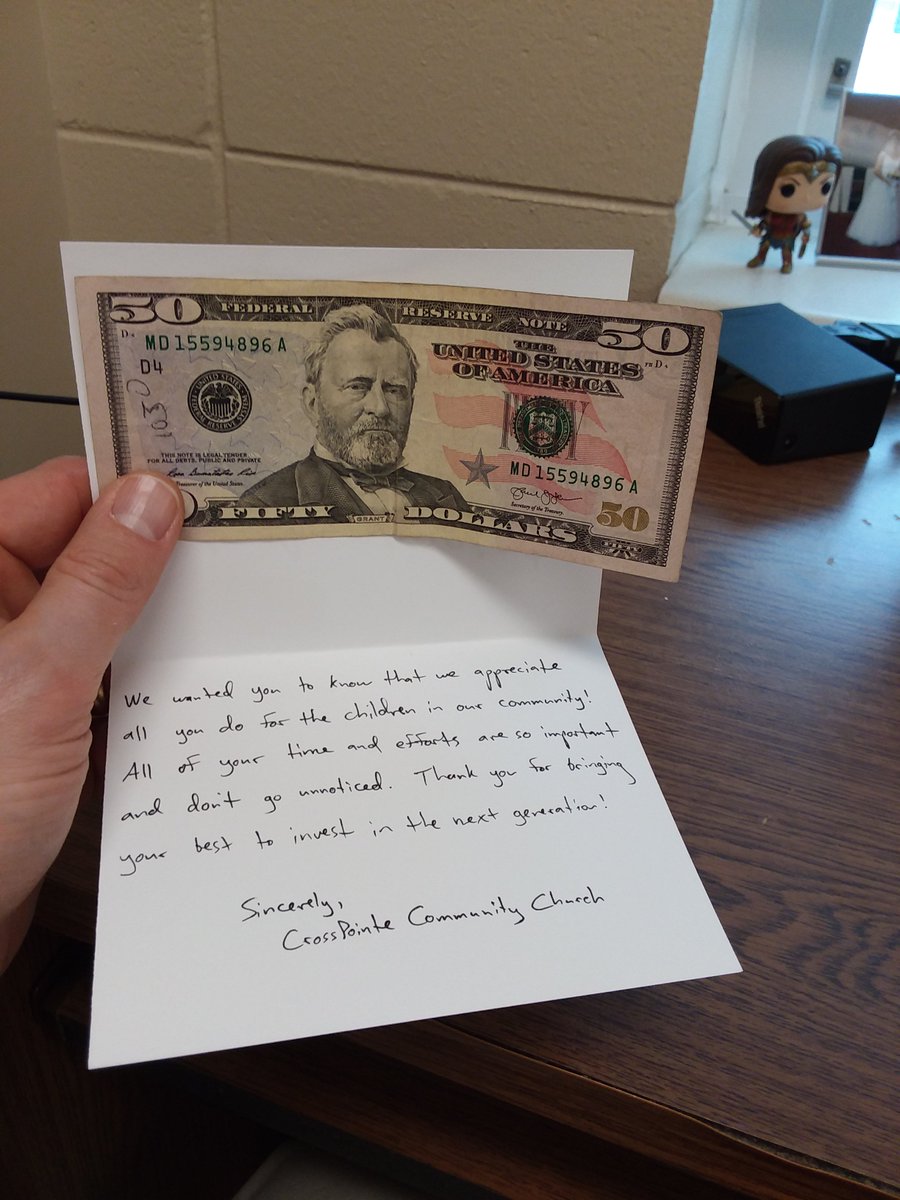 50 FEDERAL RESERVE NOTE 50
THE
UNITED STATES
OF AMERICA
MD 15594896 A
D4
1030
THIS NOTE IS LEGAL TENDER
FOR ALL DEBTS, PUBLIC AND PRIVATE
Treasurer of the United States.
MD 15594896 A
Secretary of the Treasury.
50
FIFTY GRANT DOLLARS
We wanted you to know that we appreciate
all you do for the children in our community!
All of your time and efforts are so important
and don't go unnoticed. Thank you for bringing
your best to invest in the next generation!
Sincerely,
CrossPointe Community Church